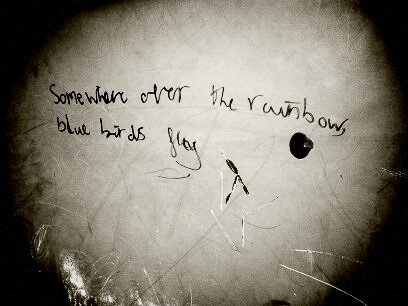 Somewhere over the rainbow,
blue birds fly